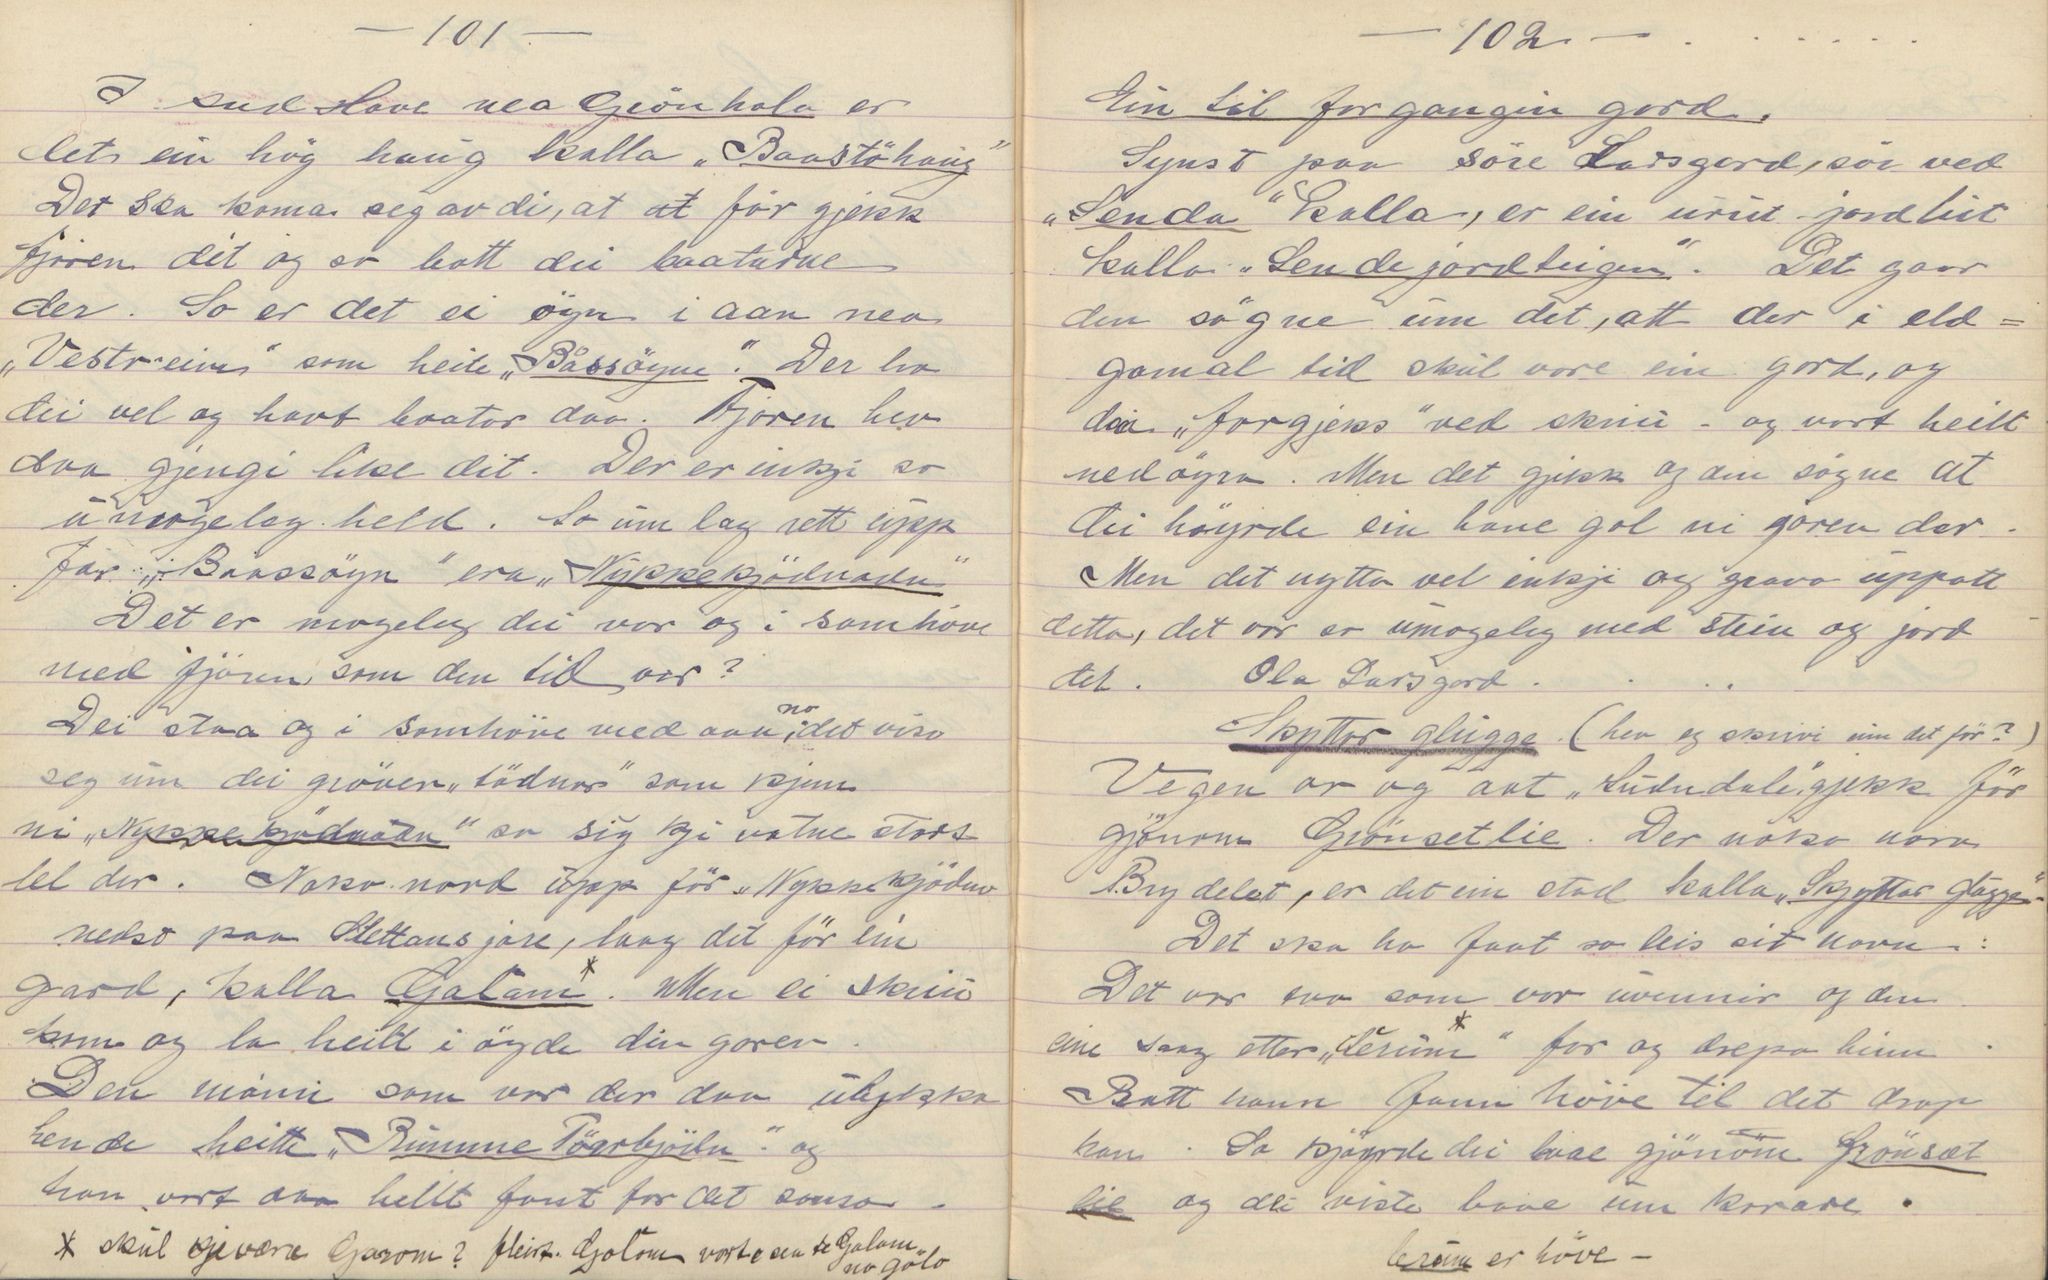 — 101 —
I sud Hove nea Grönhola er
det ein hög haug kalla „Baastöhaug"
Det ska koma seg av di, at för gjekk
fjören dit og so hatt dei baatadne
der. So er det ei öyn i aan nea
„Vestreim" som heite „Båssöyne". Der ha
dei vel og havt baatar daa. Fjoren hev
daa gjengi like dit. Der er inkje so
umogeleg held. So um lag rett upp
for „Baassöyn" era „Nykkekjödnadn"
Det er mogeleg dei var og i samhöve
med fjören som den tid var?
Dei staa og i samhöve med aan no; det visa
seg um dei gröver „tödnar" som kjem
ni „Nykkekjödnadn" so sig kji vatne stort
lel der. Noko nord upp för „Nykkekjödno
nedst paa Slettans jare, laag det för ein
gard, kalla Galam*. Men ei skriu
kom og la heilt i öyde din goren.
Den mann som var der daa ulykka
hende heitte „Rumme Tögrbjödn" og
han vart heilt fant for det sansa.
* skul kje være Garom? fleist. Galom vart e sea te Galam
no galo
— 102 —
Ein til forgangin gord.
Synst paa söre Larsgord, sör ved
„Senda" kalla, er ein urut jordbit
kalla „Sendejordteigen". Det gaar
den sögne um det, att der i eld=
gamal tid skul vore ein gord, og
din „forgjekk" ved skriu - og vart heilt
nedöyra. Men det gjekk og ein sögne at
dei höyrde ein hane gol ni goren der.
Men det nytta vel inkje og grava uppatt
detta, det var so umogeleg med stein og jord
det. Ola Larsgord.
Skyttar glugge. (hev eg skrivi um det för?)
Vegen or og aat „Luдndale" gjekk för
gjönom Grönsetlie. Der noko nora
Brydelet, er det ein stad kalla „Skyttar glugge"
Det ska ha faat so leis sit navn:
Det var tva som var uvennir og den
eine laag etter „Lerum*" for og drepa hinn
Batt hann fann höve til det drap
han. So kjöyrde dei baae gjönöm Grönsæt
lie og dei viste baae um korare.
lerum er höve -